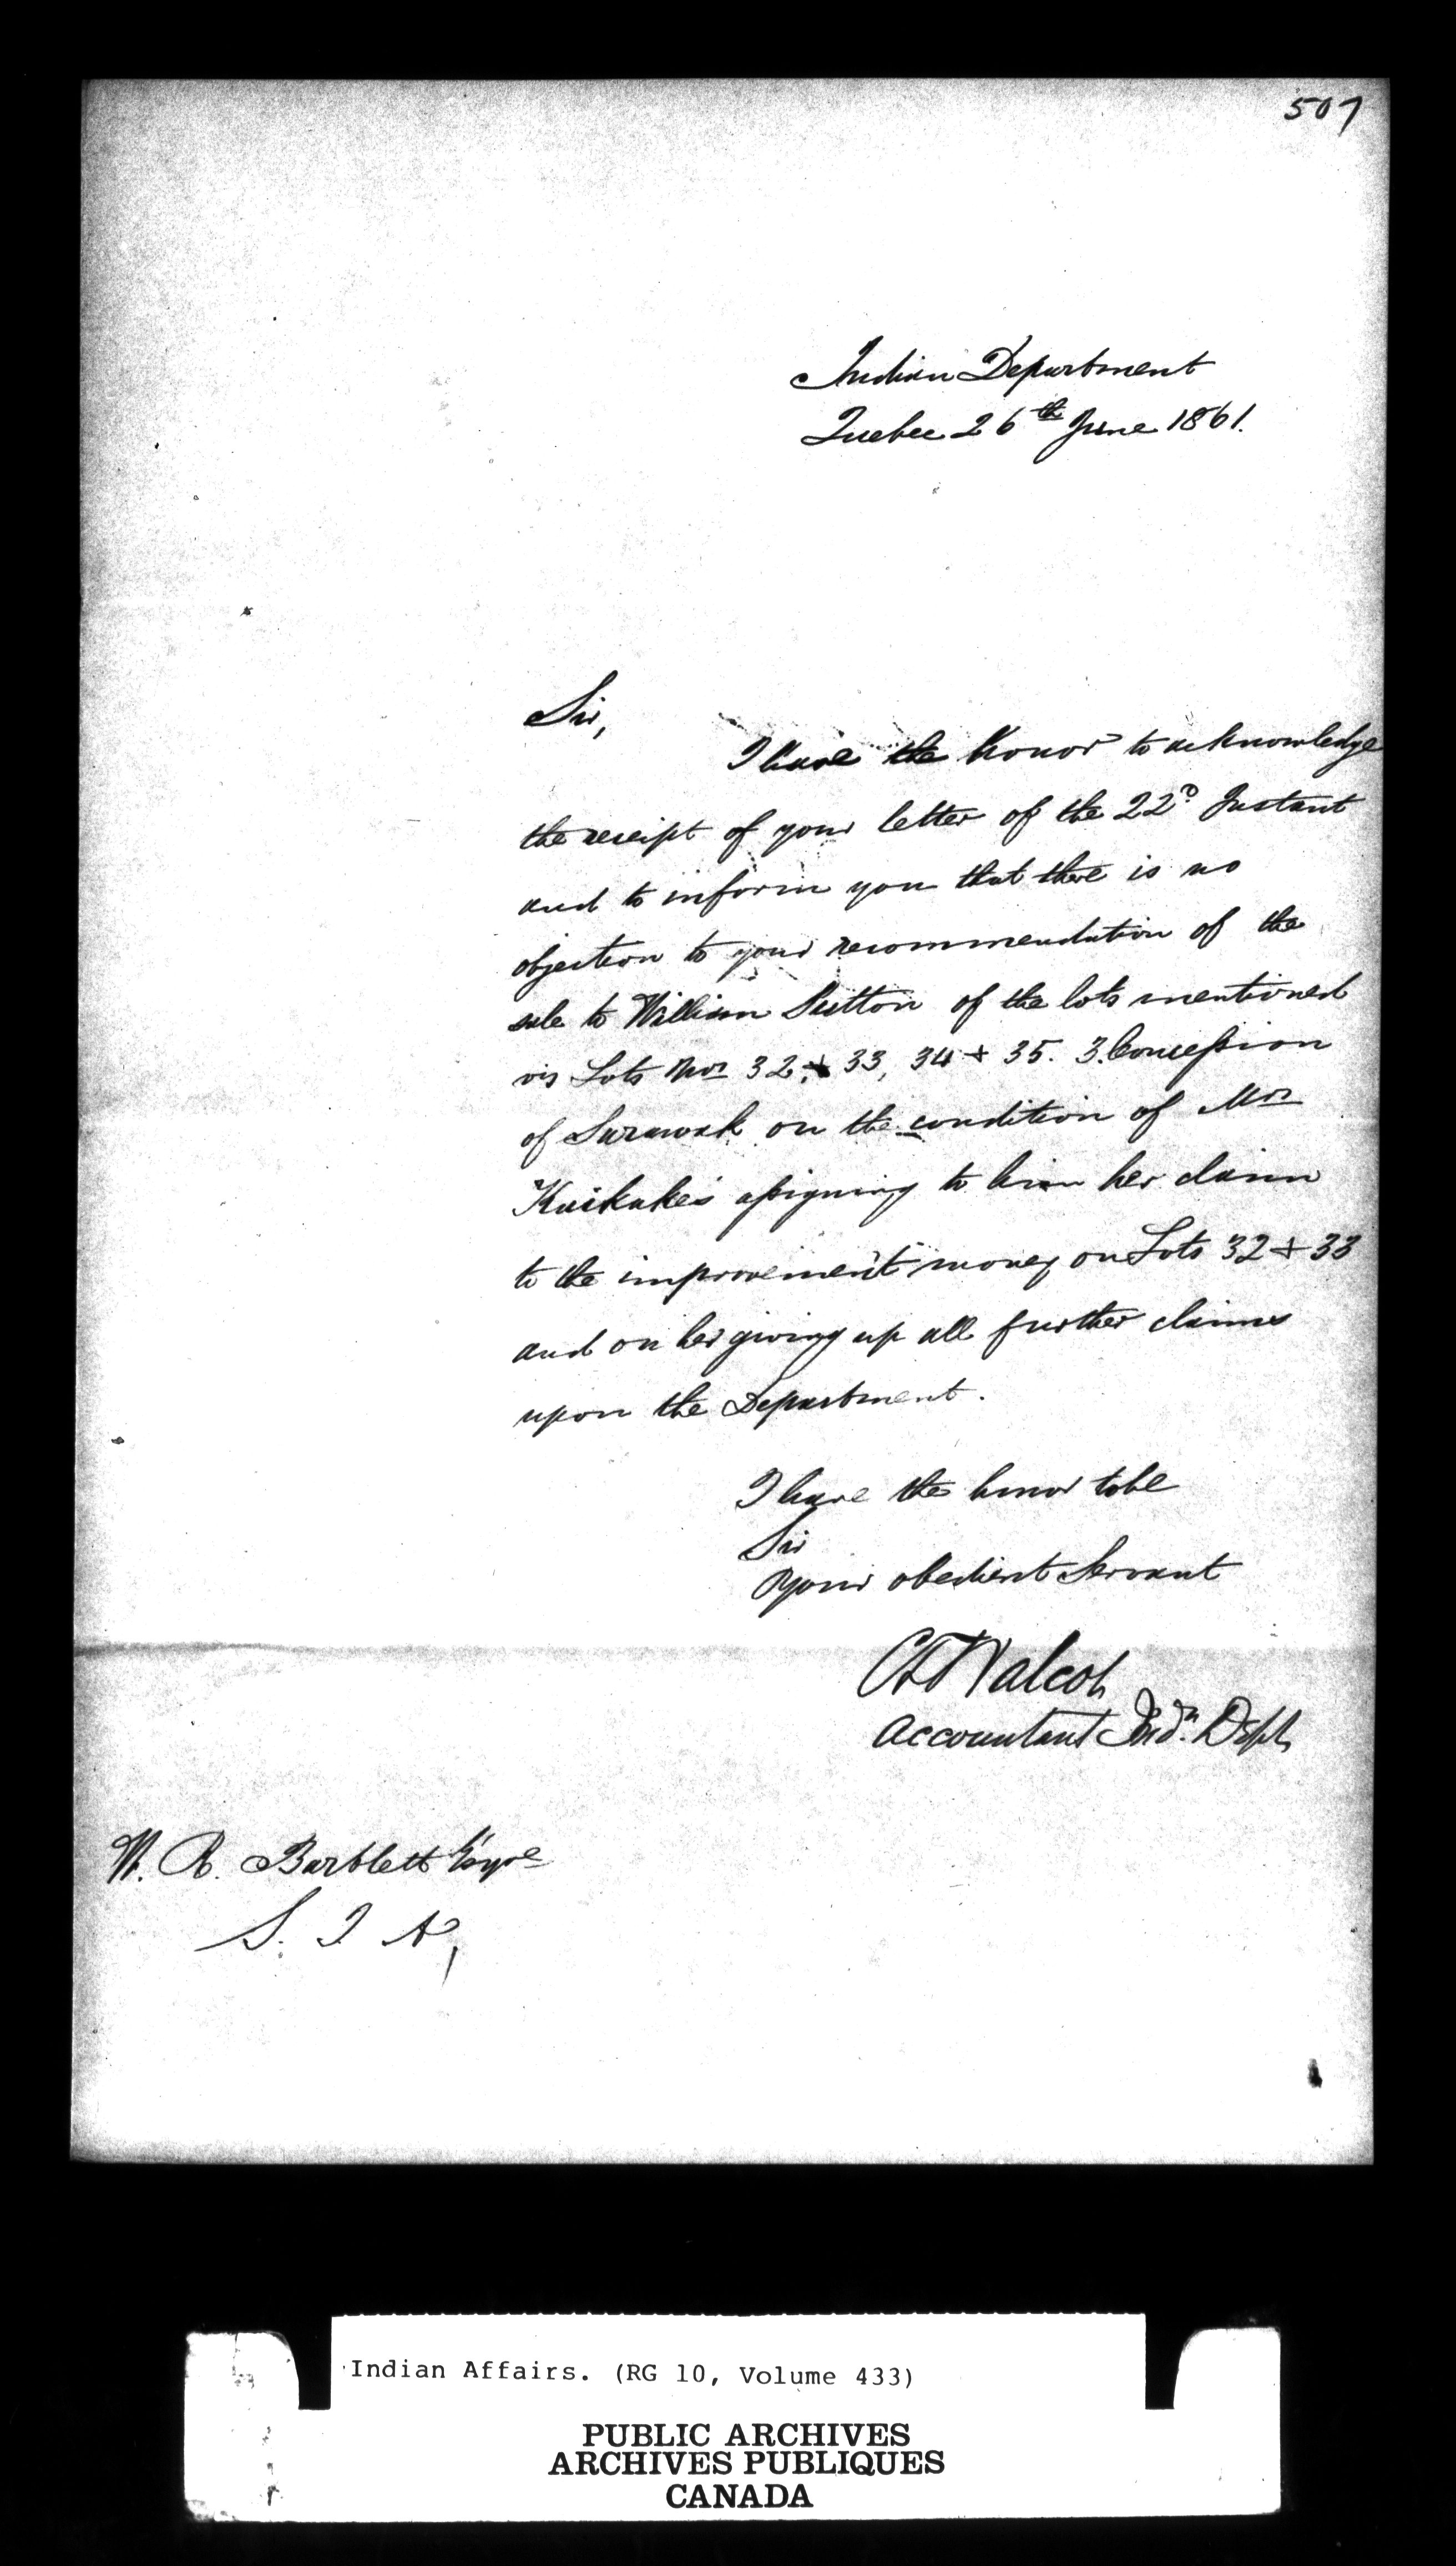 507
Indian Department
Quebec 26th June 1861.
Sir,
I have the honor to acknowledge
the receipt of your letter of the 22d. Instant
and to inform you that there is no
objection to your recommendation of the
sale to William Sutton of the lots mentioned
vis Lots Nos 32, & 33, 34 & 35. 3. Concession
of Sarawak on the condition of Mrs
Kaikake's assigning to him her claim
to the improvement money on Lots 32 & 33
and on her giving up all further claims
upon the Department.
I have the honor to be
Sir
Your obedient Servant
C T Walcot
Accountant Indn. Dept
W. R. Bartlett Esqre
S. I. A,
Indian Affairs. (RG 10, Volume 433)
PUBLIC ARCHIVES
ARCHIVES PUBLIQUES
CANADA